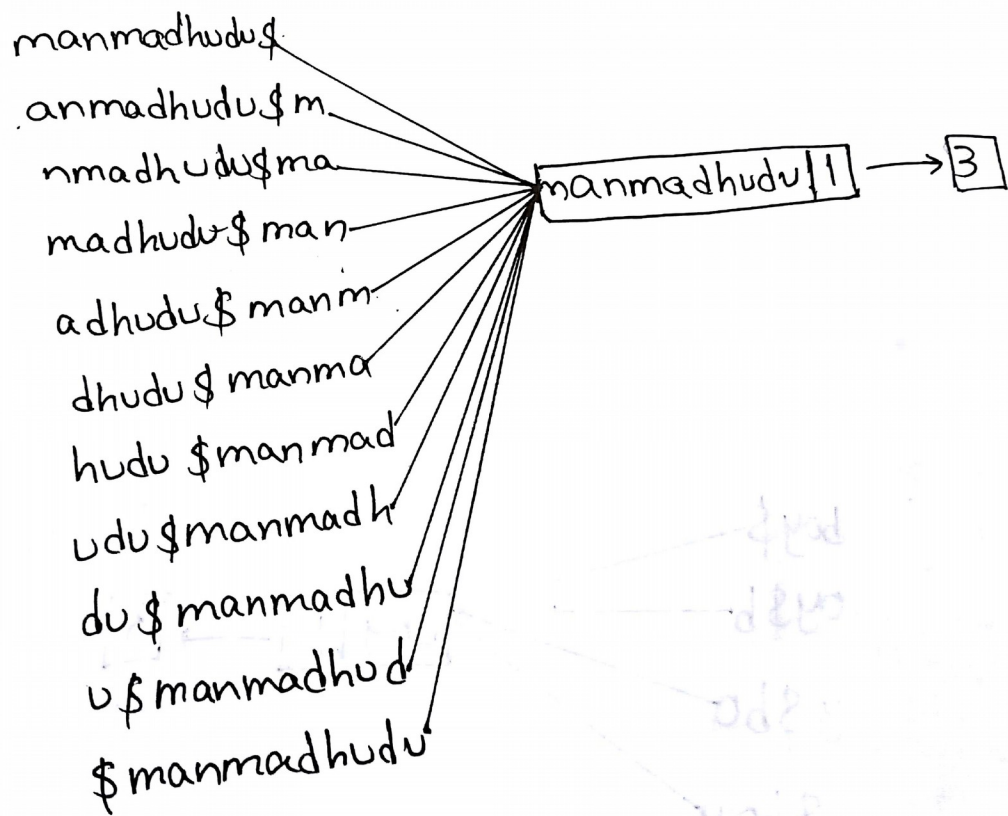 manmadhudu$
anmadhudu$m
nmadhudu$ma
manmadhudu 1 3
madhudu$man
adhudu$manm
dhudu$manma
hudu $manmad
udu$manmadh
du$manmadhu
u$manmadhud
$manmadhudu